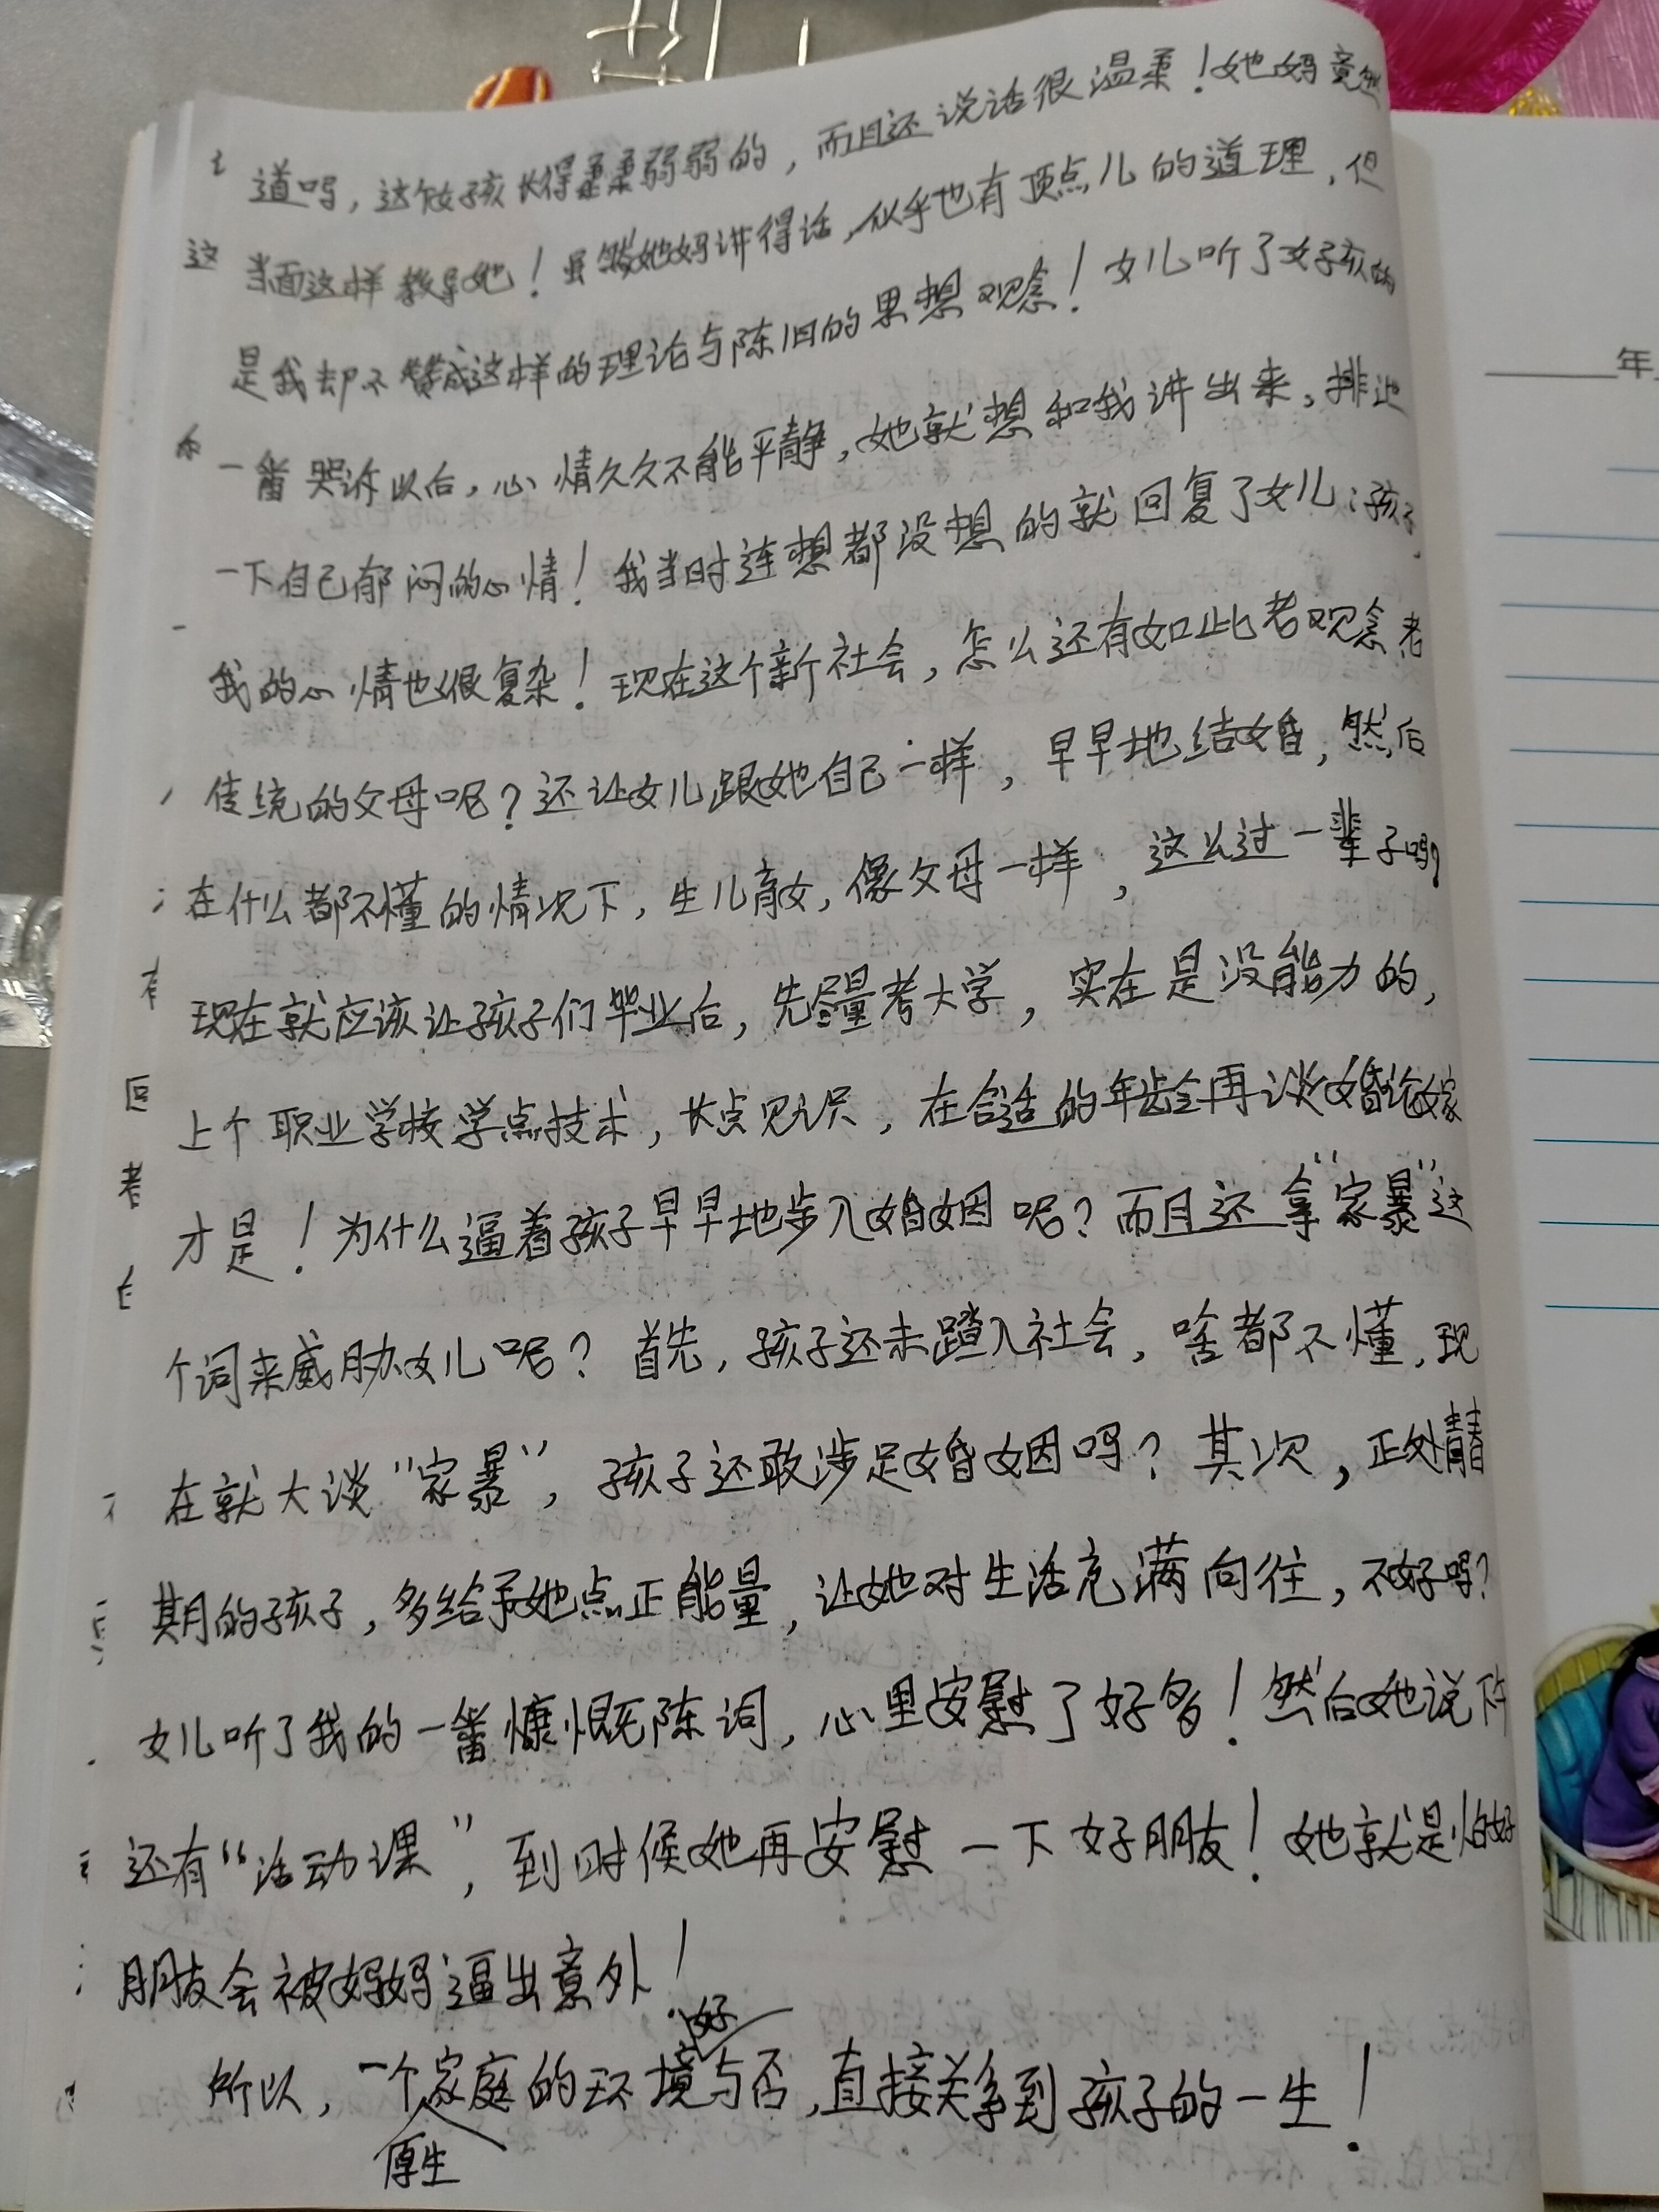 道吗，这个女孩长得柔柔弱弱的，而且还说话很温柔！她妈竟然
当面这样教导她！虽然她妈讲得话，似乎也有顶点儿的道理，但
是我却不赞成这样的理论与陈旧的思想观念！女儿听了女孩的
一番哭诉以后，心情久久不能平静，她就想和我讲出来，排泄
一下自己郁闷的心情！我当时连想都没想的就回复了女儿：孩子，
我的心情也很复杂！现在这个新社会，怎么还有如此老观念老
传统的父母呢？还让女儿跟她自己一样，早早地结婚，然后
在什么都不懂的情况下，生儿育女，像父母一样，这么过一辈子吗？
现在就应该让孩子们毕业后，先尽量考大学，实在是没能力的，
上个职业学校学点技术，长点见识，在合适的年龄再谈婚论嫁
才是！为什么逼着孩子早早地步入婚姻呢？而且还拿“家暴”这
个词来威胁女儿呢？首先，孩子还未踏入社会，啥都不懂，现
在就大谈“家暴”，孩子还敢涉足婚姻吗？其次，正处青春
期的孩子，多给予她点正能量，让她对生活充满向往，不好吗？
女儿听了我的一番慷慨陈词，心里安慰了好多！然后她说下午
还有“活动课”，到时候她再安慰一下好朋友！她就是怕好
朋友会被妈妈逼出意外！
好
所以，一个家庭的环境与否，直接关系到孩子的一生！
原生
年
这
有
回
老